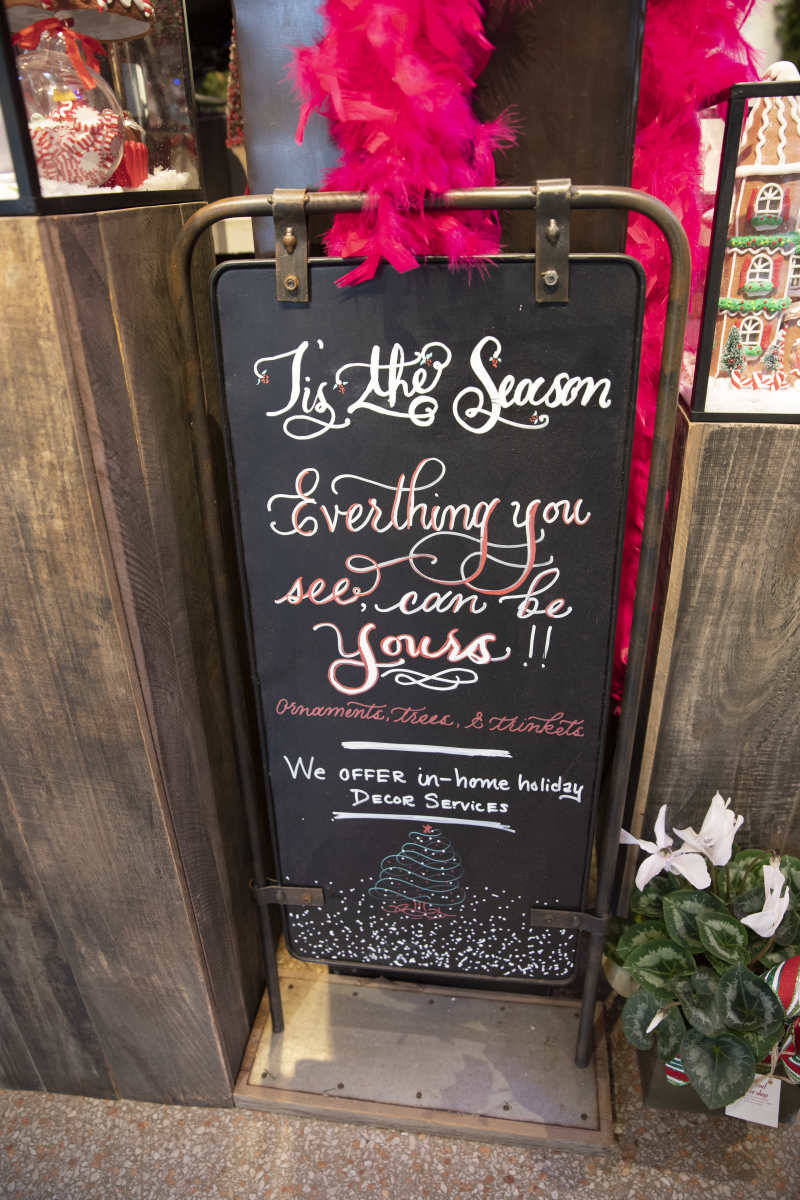 T'is the Season
Everthing you
see, can be
Yours !!
Ornaments, trees, & trinkets
We OFFER in-home holiday
DECOR SERVICES